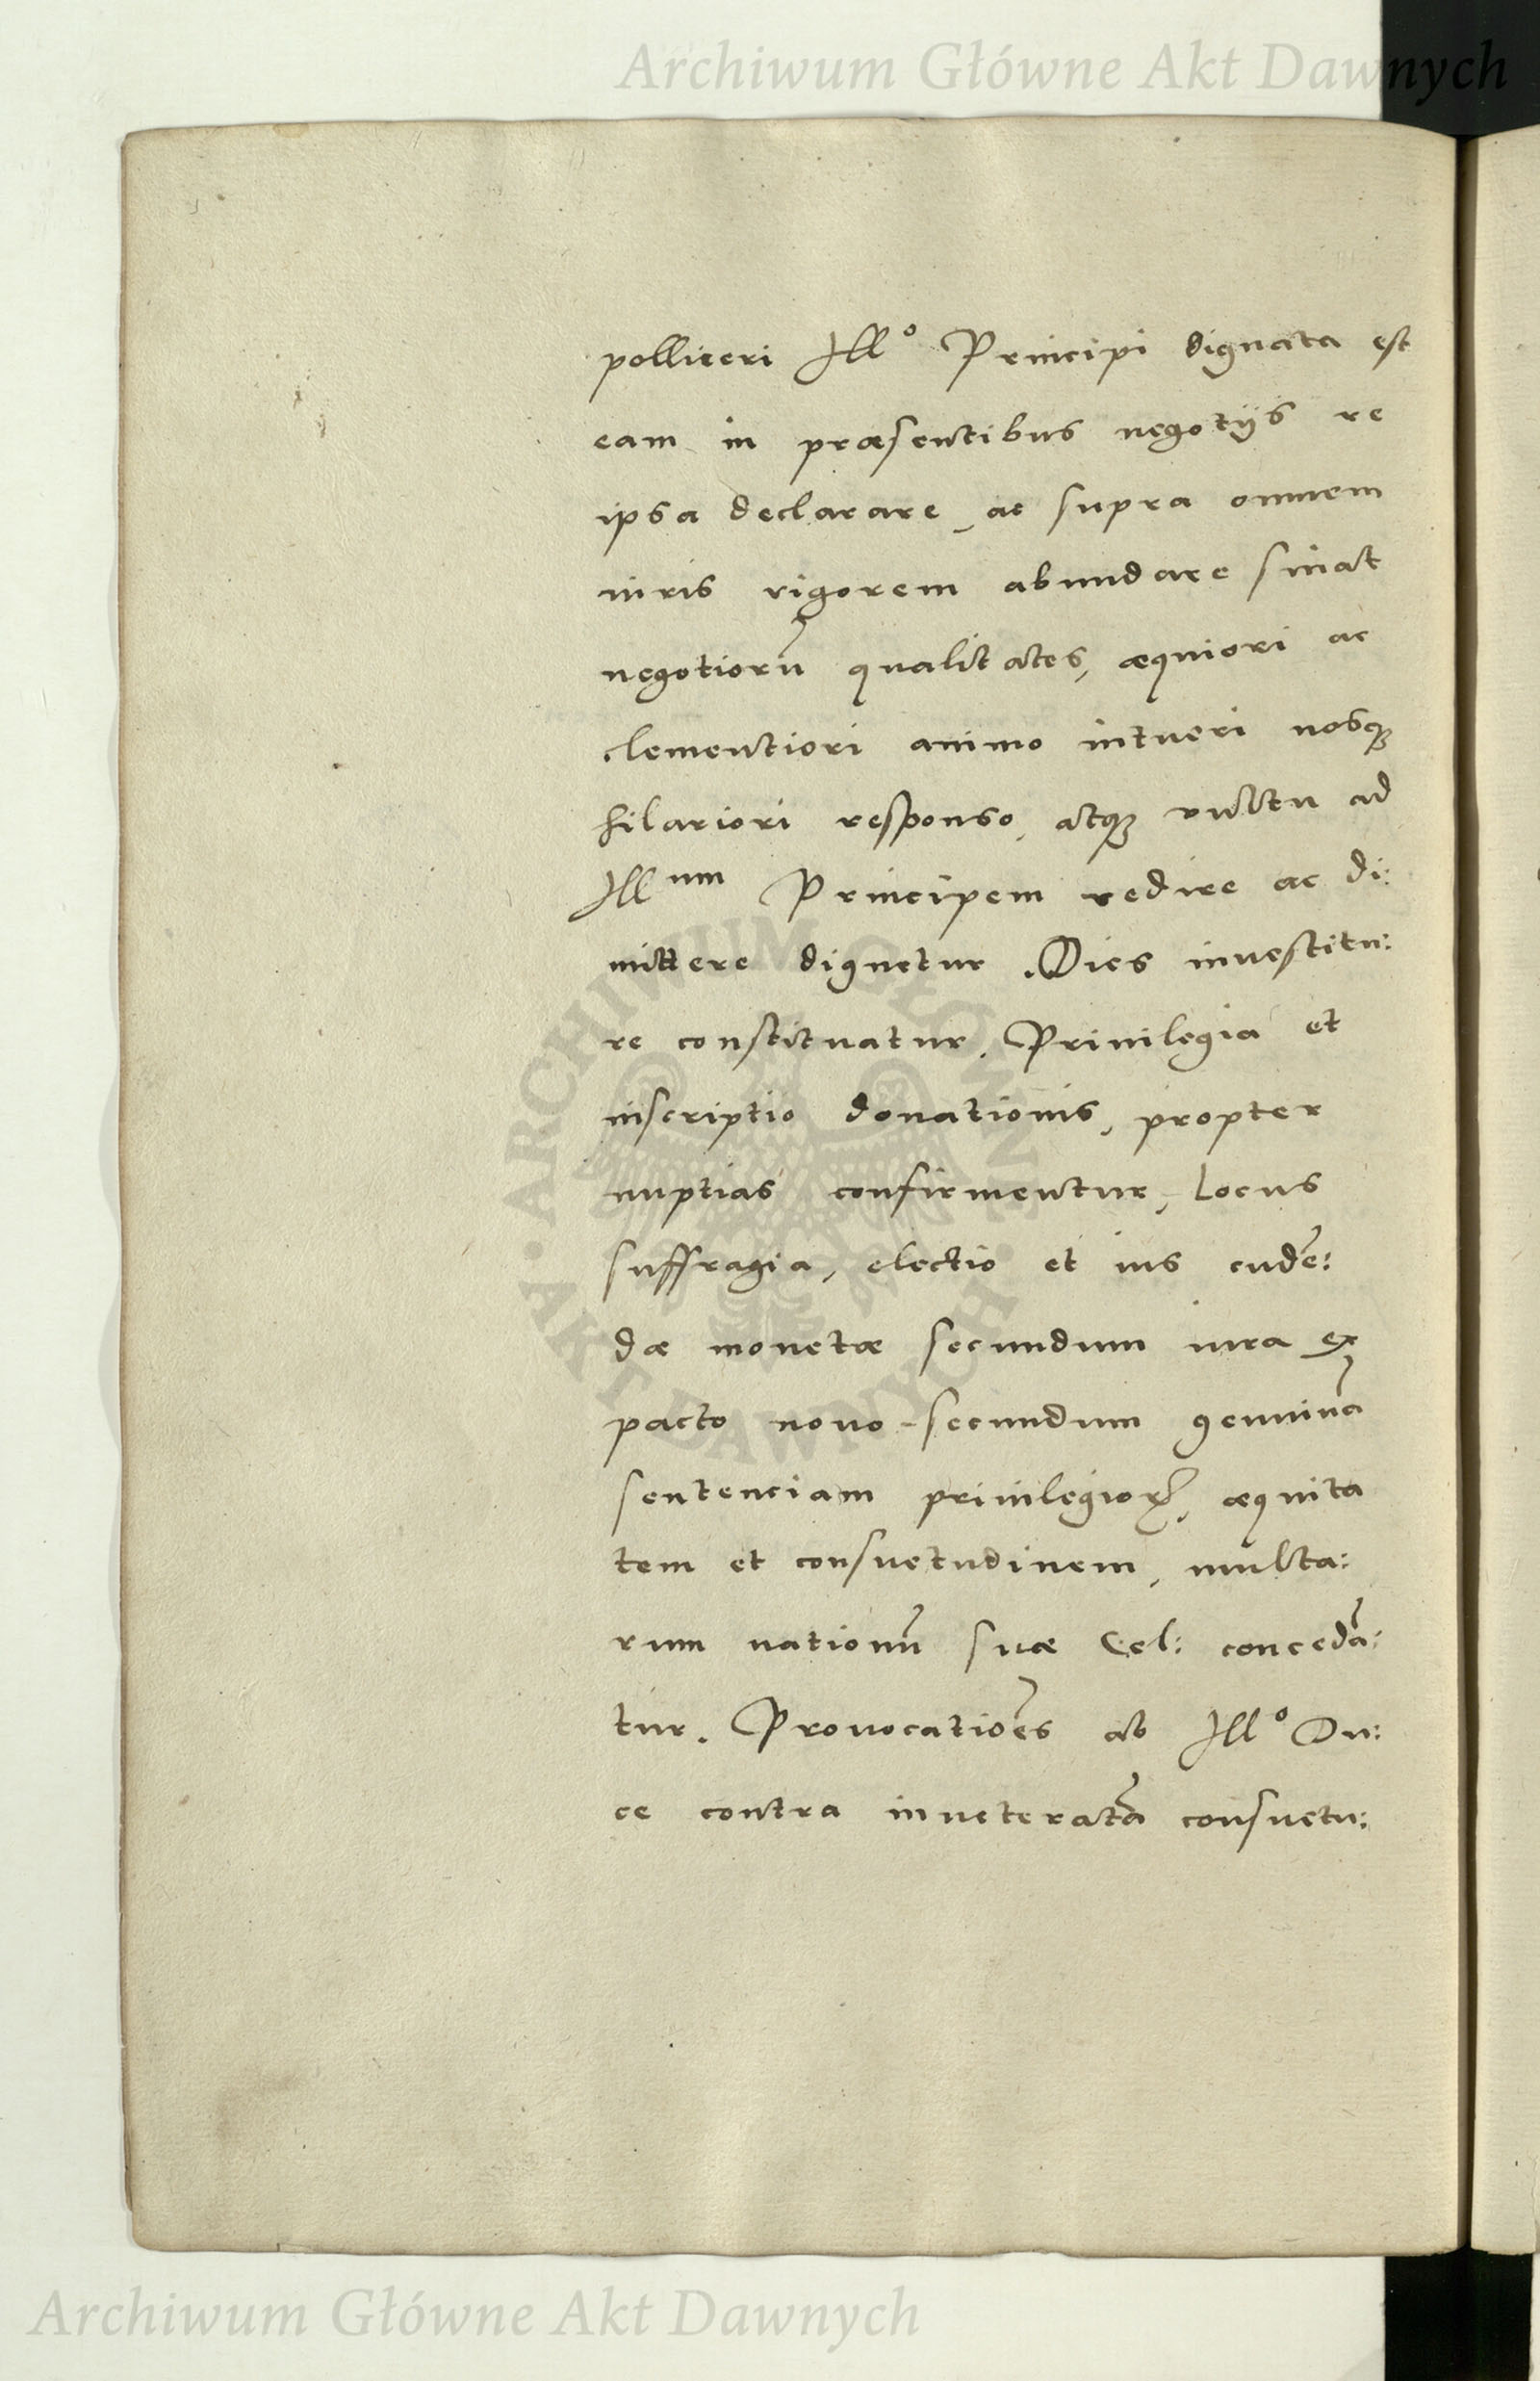 Archiwum Główne Akt Dawnych
polliceri Ill° Principi dignata est
eam in præsentibus negotijs re
ipsa declarare, ac supra omnem
iuris rigorem abundare sinat
negotiorū qualitates, æquiori ac
clementiori animo intueri nosqꝫ
hilariori responso, atqꝫ vultu ad
Illum Principem redire ac di:
mittere dignetur. Dies inuestitu:
re constituatur, Priuilegia et
inscriptio donationis, propter
nuptias confirmentur, Locus
suffragia, electio et ius cudē:
dæ monetæ secundum iura ex
pacto nouo secundum genuinā
sentenciam priuilegioꝝ, æquita
tem et consuetudinem, multa:
rum nationū suæ Cel: concedā:
tur. Prouocatioēs ab Ill° Du:
ce contra inueteratā consuetu:
ARCHIWUM GŁÓWNE · AKT DAWNYCH ·
Archiwum Główne Akt Dawnych